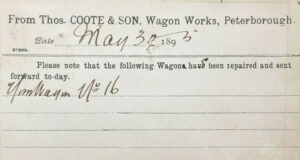 From Thos. COOTE & SON, Wagon Works, Peterborough.
Date May 30 1895
Please note that the following Wagons have been repaired and sent
forward to-day.
Wagon No 16